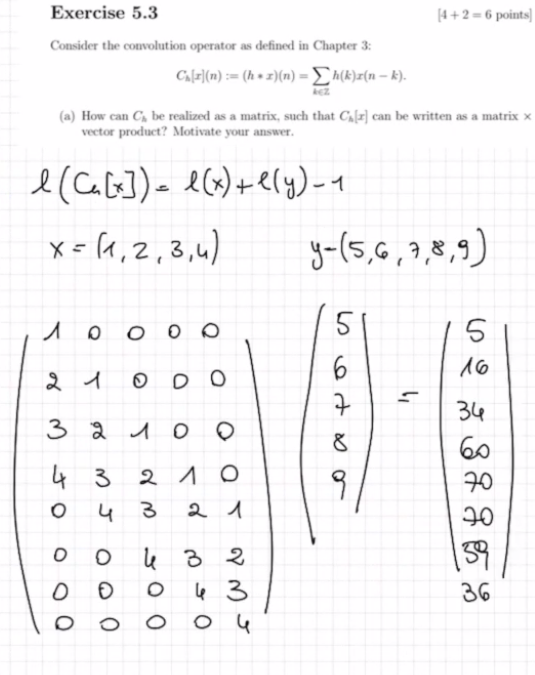 Exercise 5.3 [4 + 2 = 6 points]
Consider the convolution operator as defined in Chapter 3:
C_h[x](n) := (h ∗ x)(n) = ∑_{k∈ℤ} h(k)x(n − k).
(a) How can C_h be realized as a matrix, such that C_h[x] can be written as a matrix ×
vector product? Motivate your answer.
l(C_h[x]) = l(x) + l(y) − 1
x = (1, 2, 3, 4) y = (5, 6, 7, 8, 9)
1 0 0 0 0 5 5
2 1 0 0 0 6 16
3 2 1 0 0 7 = 34
4 3 2 1 0 8 60
0 4 3 2 1 9 70
0 0 4 3 2 70
0 0 0 4 3 59
0 0 0 0 4 36